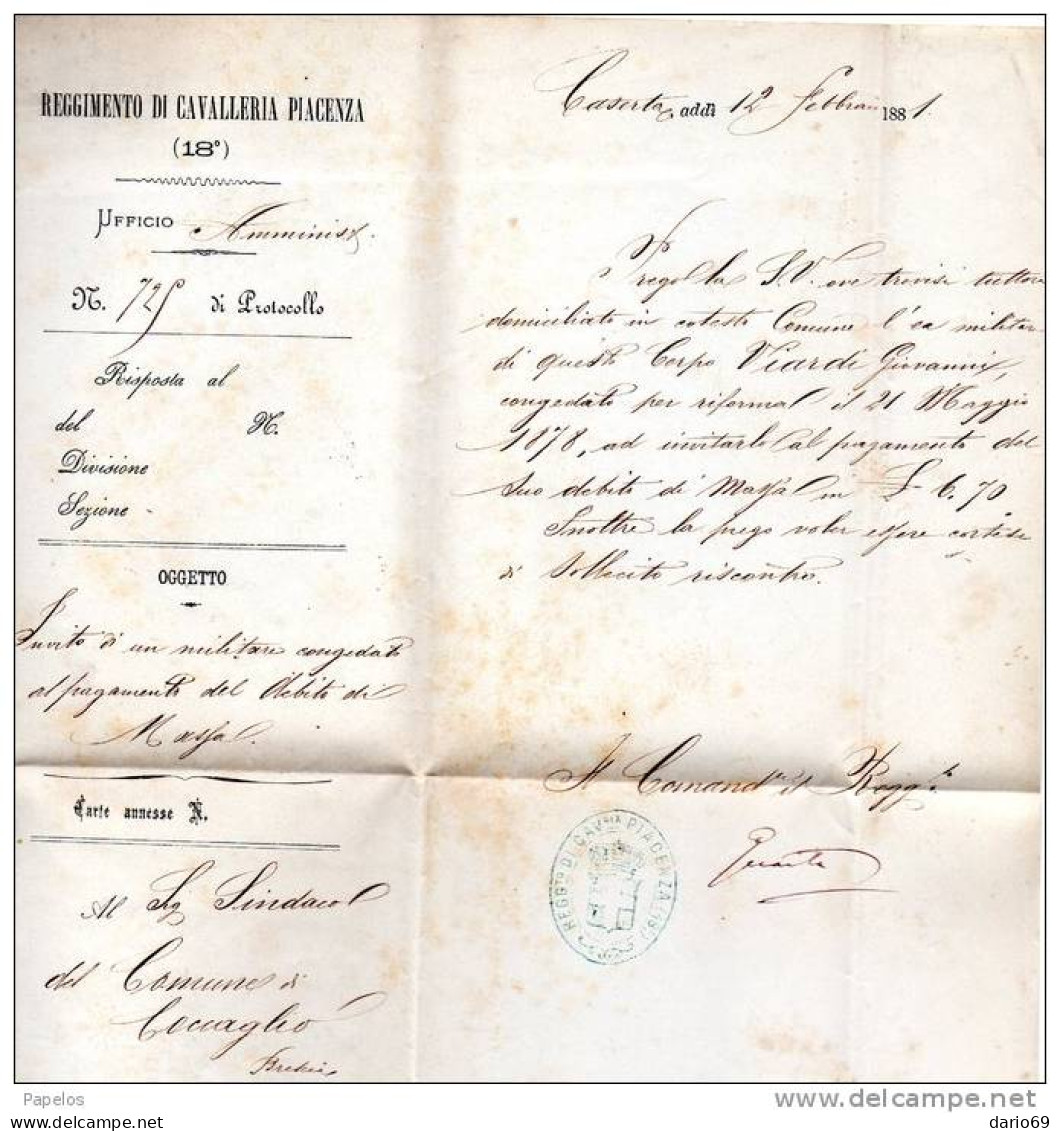 REGGIMENTO DI CAVALLERIA PIACENZA
(18º)
UFFICIO Amminist.
N. 725 di Protocollo
Risposta al
del N.
Divisione
Sezione
OGGETTO
Invito di un militare congedato
al pagamento del debito di
Massa.
Carte annesse N.
Al Sig Sindaco
del Comune di
Coccaglio
Brescia
Caserta, addì 12 Febbraio 1881.
Prego la S.V. ove trovisi tuttora
domiciliato in cotesto Comune l'ex militare
di questo Corpo Viardi Giovanni,
congedato per riforma il 21 Maggio
1878, ad invitarlo al pagamento del
suo debito di Massa in £ 6.70
Inoltre la prego voler essere cortese
di sollecito riscontro.
Il Comandte il Reggto
REGGTO DI CAVRIA PIACENZA (18º)
Papelos
www.delcampe.net
dario69